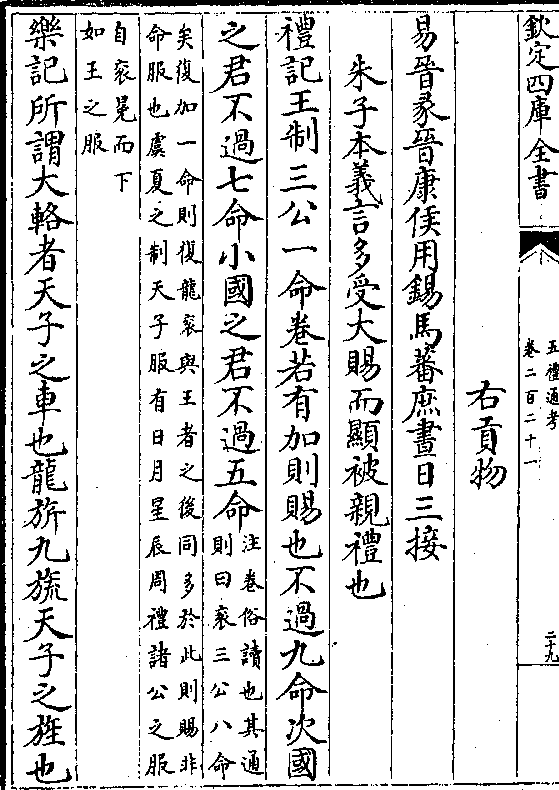 欽定四庫全書
五禮通考
卷二百二十一
二十九
右貢物
易晉彖晉康侯用錫馬蕃庶晝日三接
朱子本義言多受大賜而顯被親禮也
禮記王制三公一命卷若有加則賜也不過九命次國
之君不過七命小國之君不過五命
注卷俗讀也其通
則曰衮三公八命
矣復加一命則復龍衮與王者之後同多於此則賜非
命服也虞夏之制天子服有日月星辰周禮諸公之服
自衮冕而下
如王之服
樂記所謂大輅者天子之車也龍旂九旒天子之旌也